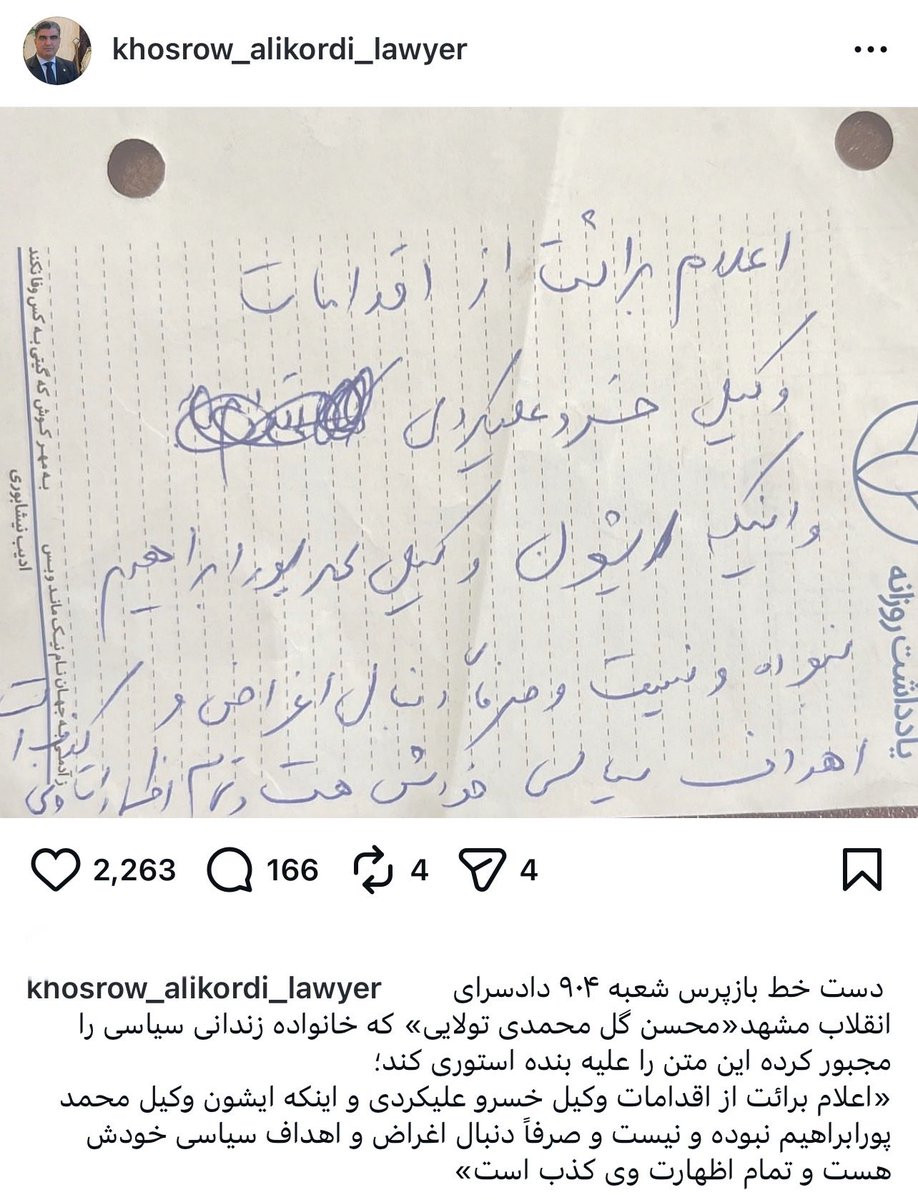 khosrow_alikordi_lawyer
اعلام برائت از اقدامات
وکیل خسرو علیکردی
و اینکه ایشون وکیل محمد پورابراهیم
نبوده و نیست و صرفاً دنبال اغراض و
اهداف سیاسی خودش هست و تمام اظهارات وی
کذب است
یادداشت روزانه
به مهر کوش که گیتی به کس وفا نکند
ز آدمی به جهان نام نیک ماند و بس
ادیب نیشابوری
2,263 166 4 4
khosrow_alikordi_lawyer دست خط بازپرس شعبه ۹۰۴ دادسرای
انقلاب مشهد«محسن گل محمدی تولایی» که خانواده زندانی سیاسی را
مجبور کرده این متن را علیه بنده استوری کند؛
«اعلام برائت از اقدامات وکیل خسرو علیکردی و اینکه ایشون وکیل محمد
پورابراهیم نبوده و نیست و صرفاً دنبال اغراض و اهداف سیاسی خودش
هست و تمام اظهارت وی کذب است»